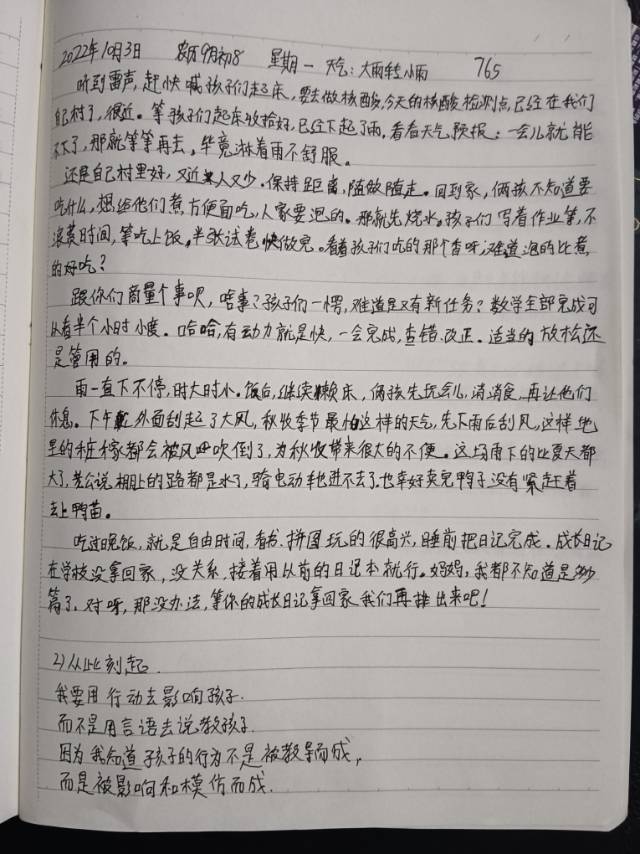 2022年10月3日 农历9月初8 星期一 天气:大雨转小雨 765
听到雷声,赶快喊孩子们起床,要去做核酸,今天的核酸检测点,已经在我们
自己村了,很近。等孩子们起床收拾好,已经下起了雨,看看天气预报:一会儿就能
不下了,那就等等再去,毕竟淋着雨不舒服。
还是自己村里好,又近人又少。保持距离,随做随走。回到家,俩孩不知道要
吃什么,想给他们煮方便面吃,人家要泡的。那就先烧水。孩子们写着作业等,不
浪费时间,等吃上饭,半张试卷快做完。看着孩子们吃的那个香呀,难道泡的比煮
的好吃?
跟你们商量个事呗,啥事?孩子们一愣,难道是又有新任务?数学全部完成可
以看半个小时小度。哈哈,有动力就是快,一会完成,查错.改正。适当的放松还
是管用的。
雨一直下不停,时大时小。饭后,继续赖床,俩孩先玩会儿,消消食,再让他们
休息。下午外面刮起了大风,秋收季节最怕这样的天气,先下雨后刮风,这样地
里的桩稼都会被风吹倒了,为秋收带来很大的不便。这场雨下的比夏天都
大了,老公说棚上的路都是水了,骑电动车也进不去了.也幸好卖完鸭子没有紧赶着
去上鸭苗。
吃过晚饭,就是自由时间,看书.拼图玩的很高兴,睡前把日记完成。成长日记
在学校没拿回家,没关系,接着用以前的日记本就行。妈妈,我都不知道是多少
篇了。对呀,那没办法,等你的成长日记拿回家我们再排出来吧!
2)从此刻起.
我要用行动去影响孩子.
而不是用言语去说教孩子.
因为我知道孩子的行为不是被教导而成,
而是被影响和模仿而成.